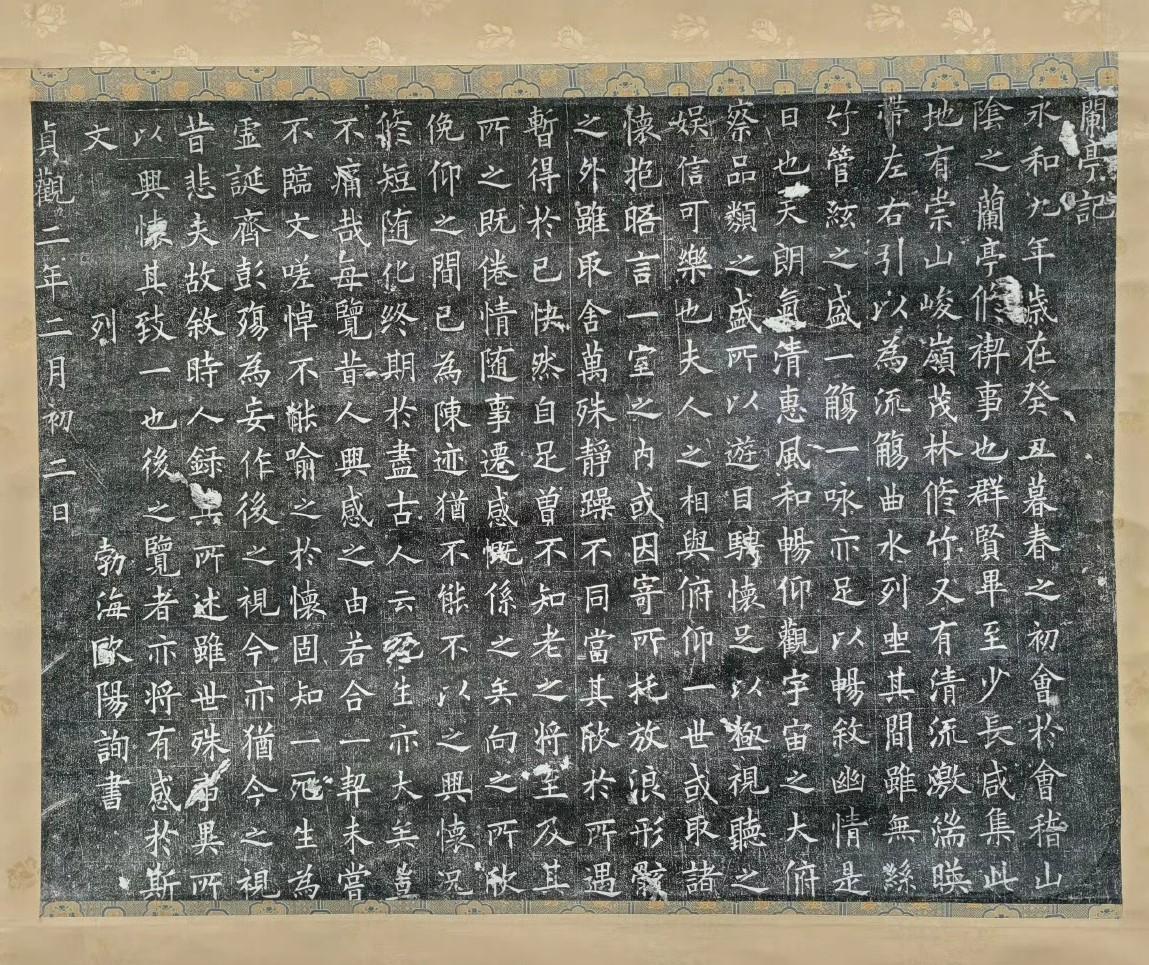 蘭亭記
永和九年歲在癸丑暮春之初會於會稽山
陰之蘭亭修禊事也群賢畢至少長咸集此
地有崇山峻嶺茂林修竹又有清流激湍暎
帶左右引以為流觴曲水列坐其間雖無絲
竹管絃之盛一觴一咏亦足以暢敘幽情是
日也天朗氣清惠風和暢仰觀宇宙之大俯
察品類之盛所以遊目騁懷足以極視聽之
娛信可樂也夫人之相與俯仰一世或取諸
懷抱晤言一室之內或因寄所托放浪形骸
之外雖取舍萬殊靜躁不同當其欣於所遇
暫得於己快然自足曾不知老之將至及其
所之既倦情随事遷感慨係之矣向之所欣
俛仰之間已為陳迹猶不能不以之興懷況
修短随化終期於盡古人云死生亦大矣豈
不痛哉每覽昔人興感之由若合一契未嘗
不臨文嗟悼不能喻之於懷固知一死生為
虛誕齊彭殤為妄作後之視今亦猶今之視
昔悲夫故敘時人録其所述雖世殊事異所
以興懷其致一也後之覽者亦將有感於斯
文 列 勃海歐陽詢書
貞觀二年二月初二日